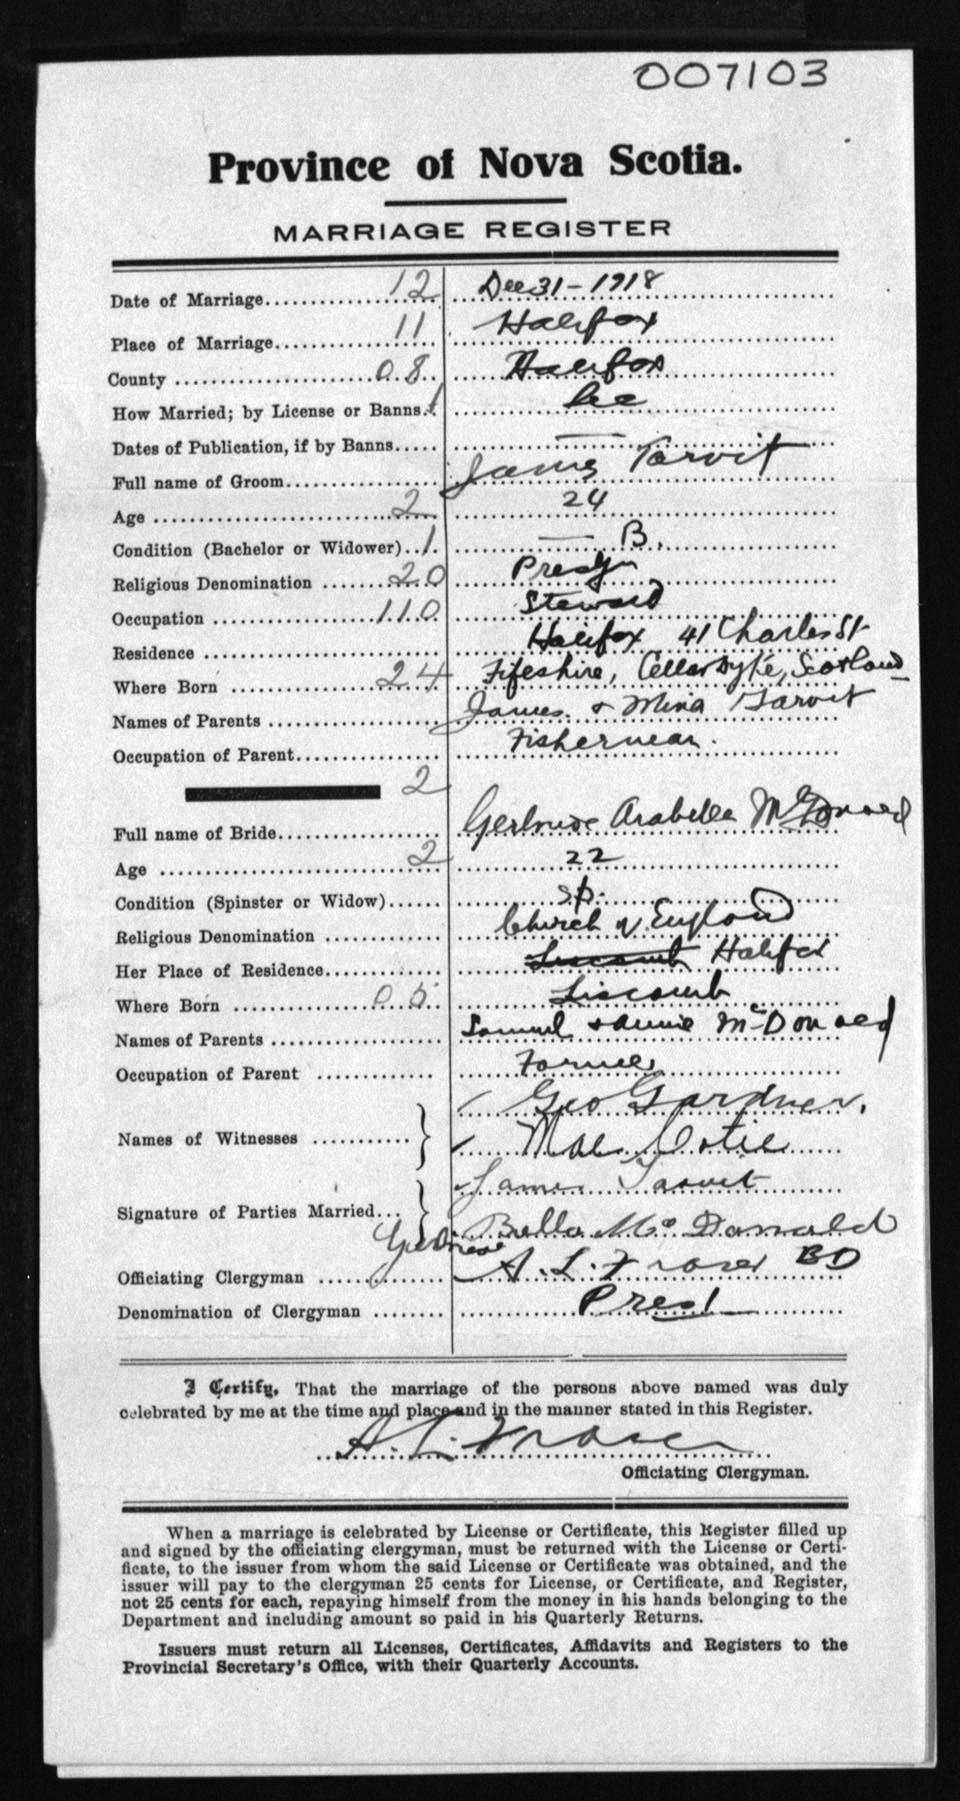 007103
Province of Nova Scotia.
MARRIAGE REGISTER
Date of Marriage 12 Dec 31 - 1918
Place of Marriage 11 Halifax
County 08 Halifax
How Married; by License or Banns 1 Lic
Dates of Publication, if by Banns —
Full name of Groom James Tarvit
Age 2 24
Condition (Bachelor or Widower) 1 — B.
Religious Denomination 20 Presbyn
Occupation 110 Steward
Residence Halifax 41 Charles St
Where Born 24 Fifeshire, Cellardyke, Scotland
Names of Parents James & Mina Tarvit
Occupation of Parent Fisherman.
2
Full name of Bride Gertrude Arabella McDonald
Age 2 22
Condition (Spinster or Widow) Sp.
Religious Denomination Church of England
Her Place of Residence Liscomb Halifax
Where Born 05 Liscomb
Names of Parents Samuel & Annie McDonald
Occupation of Parent Farmer
Geo Gardner.
Names of Witnesses Mae
James Tarvit
Signature of Parties Married
Gertrude Bella McDonald
Officiating Clergyman A. L. Fraser BD
Denomination of Clergyman Prest
I Certify, That the marriage of the persons above named was duly
celebrated by me at the time and place and in the manner stated in this Register.
A. L. Fraser
Officiating Clergyman.
When a marriage is celebrated by License or Certificate, this Register filled up
and signed by the officiating clergyman, must be returned with the License or Certi-
ficate, to the issuer from whom the said License or Certificate was obtained, and the
issuer will pay to the clergyman 25 cents for License, or Certificate, and Register,
not 25 cents for each, repaying himself from the money in his hands belonging to the
Department and including amount so paid in his Quarterly Returns.
Issuers must return all Licenses, Certificates, Affidavits and Registers to the
Provincial Secretary's Office, with their Quarterly Accounts.